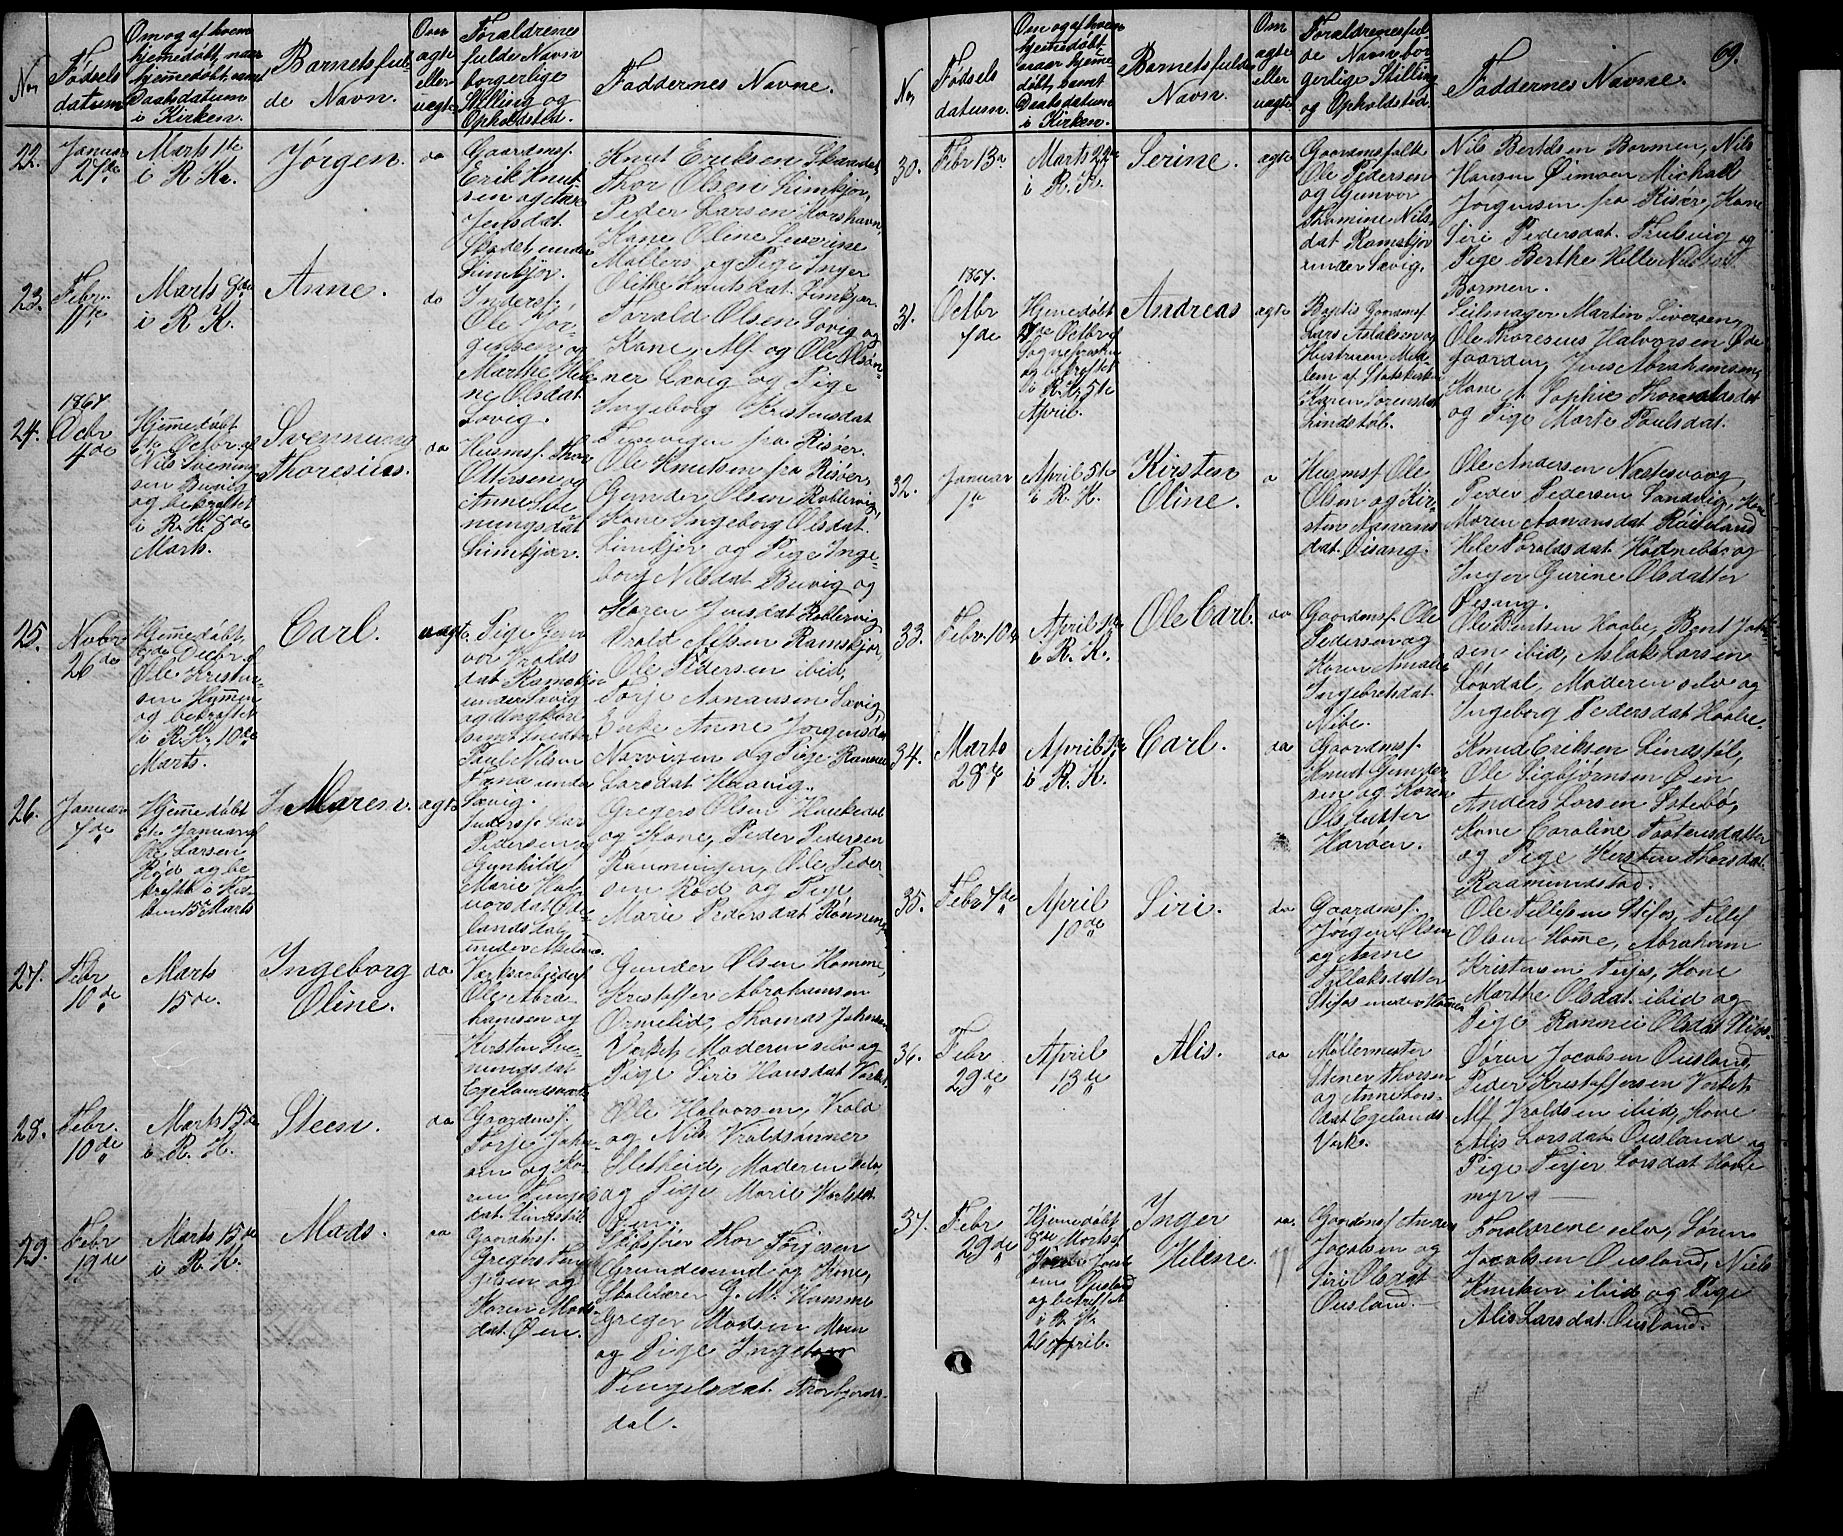 No
Fødsels
datum
Om og af hvem
hjemmedøbt, naar
hjemmedøbt, samt
Daabsdatum
i Kirken.
Barnets ful-
de Navn.
Om
ægte
eller
uægte
Forældrenes
fulde Navn
borgerlige
Stilling og
Opholdsted.
Faddernes Navne.
22.
Januar
27de
Marts 1te
i R. K.
Jørgen.
do
Gaardmsf.
Erik Knut-
sen og
Jensdat.
under
Limkjær.
Knut Eriksen
Thor Olsen Limkjær,
Peder Larsen Korshavn
Kone Oline Severine
Møllers og Pige Inger
Olithe Knutsdat. Limkjær
23.
Febr.
11te
Marts 8de
i R. K.
Anne.
do
Inderst.
Ole Jør-
gensen og
Marthe Hele-
ne Olsdat.
Søvig.
Torald Olsen Søvig og
Kone, Alf og Ole Olsøn-
ner Søvig og Pige
Ingeborg Kristensdat
24.
1867
Octbr
4de
Hjemmedøbt
6te Octbr af
Nils Svennung-
sen Buvig
og bekræftet
i R. K. 8de
Marts.
Svennung
Thoresius.
do
Husmsf. Thor
Ottersen og
Anne Sve-
nungsdat
Limkjær.
fra Risøer.
Ole Knutsen fra Risøer,
Gunder Olsen Roblervig,
Kone Ingeborg Olsdat.
Limkjær og Pige Inge-
borg Nilsdat Buvig og
Karen Jensdat Roblervig
25.
Novbr
26de
Hjemmedøbt
Decbr af
Ole Kristen-
sen
og bekræftet
i R. K. 10de
Marts.
Carl.
uægte
Pige Gun-
vor Vrolds
dat Ramskjær
under Søvig
og Ungkarl
Paul Nilsen
under
Søvig.
Vrold Alfsen Ramskjær,
Ole Pedersen ibid,
Torje Aamansen Søvig,
Anne Jørgensdat
Narvigen og Pige Rannei
Larsdat
26.
Januar
7de
Hjemmedøbt
Januar af
Ole Larsen
Rød og be-
kræftet i Kir-
ken 15de Marts
Maren.
ægte
Inderst. Lars
Pedersen og
Gunhild
Marie Hal-
vorsdat
under
Gregers Olsen
og Kone, Peder Pedersen
Rønningen, Ole Peder-
sen Rød og Pige
Marie Pedersdat Rønningen
27.
Febr
10de
Marts
15de.
Ingeborg
Oline.
do
Værksarbeidersf.
Ole Abra-
hamsen og
Kirsten Sve-
nungsdat
Egelandsværk
Gunder Olsen Homme,
Kristoffer Abrahamsen
Ormelid, Thomas Johnsen
Værket, Moderen selv og
Pige Siri Hansdat Værket
28.
Febr.
10de
Marts 15de
i R. K.
Steen.
do
Gaardmsf.
Torje John-
sen og Ka-
ren
dat. Lindstøl
Ole Halvorsen, Vrold
og Nils Vroldsønner
Sletheid, Moderen selv
og Pige Marie
Øen.
29.
Febr
19de
Marts 15de
i R. K.
Mads.
do
Gaardmsf.
Gregers Tar-
jesen og
Karen Mads-
dat. Øen.
Thor Torjesen
Grundesund og Kone,
Skolelærer G. M. Homme
Greger Madsen Moen
og Pige Ingeborg
Tengelsdat. Thorbjørns-
dal.
69.
No
Fødsels
datum.
Om og af hvem
hjemmedøbt
naar hjemme-
døbt, samt
Daabsdatum
i Kirken.
Barnets fulde
Navn.
Om
ægte
eller
uægte
Forældrenes ful-
de Navn, bor-
gerlige Stilling
og Opholdsted.
Faddernes Navne.
30.
Febr 13de
Marts 22de
i R. K.
Serine.
ægte
Gaardmsfolk
Ole Pedersen
og Gunvor
Thomine Nils-
dat Ramskjær
under Søvig.
Nils Bertelsen Barmen, Nils
Hansen Øimoen Michael
Jørgensen fra Risøer, Kone
Siri Pedersdat. og
Pige Berthe Helle Nilsdat
Barmen.
31.
1867.
Octbr
7de
Hjemmedøbt
Octbr af
Sognepræsten
og bekræftet
i R. K. 5te
April.
Andreas
ægte
Baptist Gaardmsf.
Lars Aslaksen og
Hustruen Med-
lem af Statskirken
Karen Sørensdat
Lindstøl.
Seilmager Martin Siversen,
Ole Thoresius Halvorsen Øde-
gaarden, Jens Abrahamsen,
Kone Sophie Thomasdat
og Pige Marte Paulsdat.
32.
Januar
1te
April 5te
i R. K.
Kirsten
Oline.
Husmsf. Ole
Olsen og Kir-
sten Aamans
dat. Øisang.
Ole Andersen Næstesvaag
Peder Pedersen Sandvig, Kone
Maren Aamansdat Røiseland
Hele Toraldsdat Hødnebø og
Inger Gurine Olsdatter
Øisang.
33.
Febr. 10de
April
i R. K.
Ole Carl.
do
Gaardmsf. Ole
Pedersen og
Karen Amalie
Ingebretsdat
Nibe.
Ole Bentsen Haabe, Bent John-
sen ibid, Aslak Larsen
Løvdal, Moderen selv og
Ingeborg Pedersdat Haabe.
34.
Marts
28de
April
i R. K.
Carl.
do
Gaardmsf.
Knud Gunder-
sen og Karen
Olsdatter
Havøen.
Knud Eriksen Lindstøl,
Ole Sigbjørnsen Øen
Anders Larsen Sætebø,
Kone Caroline Tostensdatter
og Pige Kersten Thorsdat.
Raamundstad.
35.
Febr 4de
April
10de
Siri.
do
Gaardmsf.
Jørgen Olsen
og Anne
Tellefsdatter
Stifos under Homme
Ole Tellefsen Stifos, Tellef
Olsen Homme, Abraham
Kristensen Terjes, Kone
Marthe Olsdat. ibid og
Pige Rannei Olsdat Stifos.
36.
Febr
29de
April
13de
Alis.
do
Møllermester
Stener Thorsen
og Anne Lars-
dat Egelands
Værk.
Søren Jacobsen Ousland,
Peder Kristoffersen Værket,
Alf Vroldsen ibid, Kone
Alis Larsdat Ousland og
Pige Terjer Larsdat Homme
myr.
37.
Febr
29de
Hjemmedøbt
Marts af
Jacob-
sen Ousland
og bekræftet
i R. K.
26 April.
Inger
Helene.
do.
Gaardmsf. Anders
Jacobsen og
Siri Olsdat
Ousland.
Forældrene selv, Søren
Jacobsen Ousland, Niels
Knutsen ibid og Pige
Alis Larsdat Ousland.